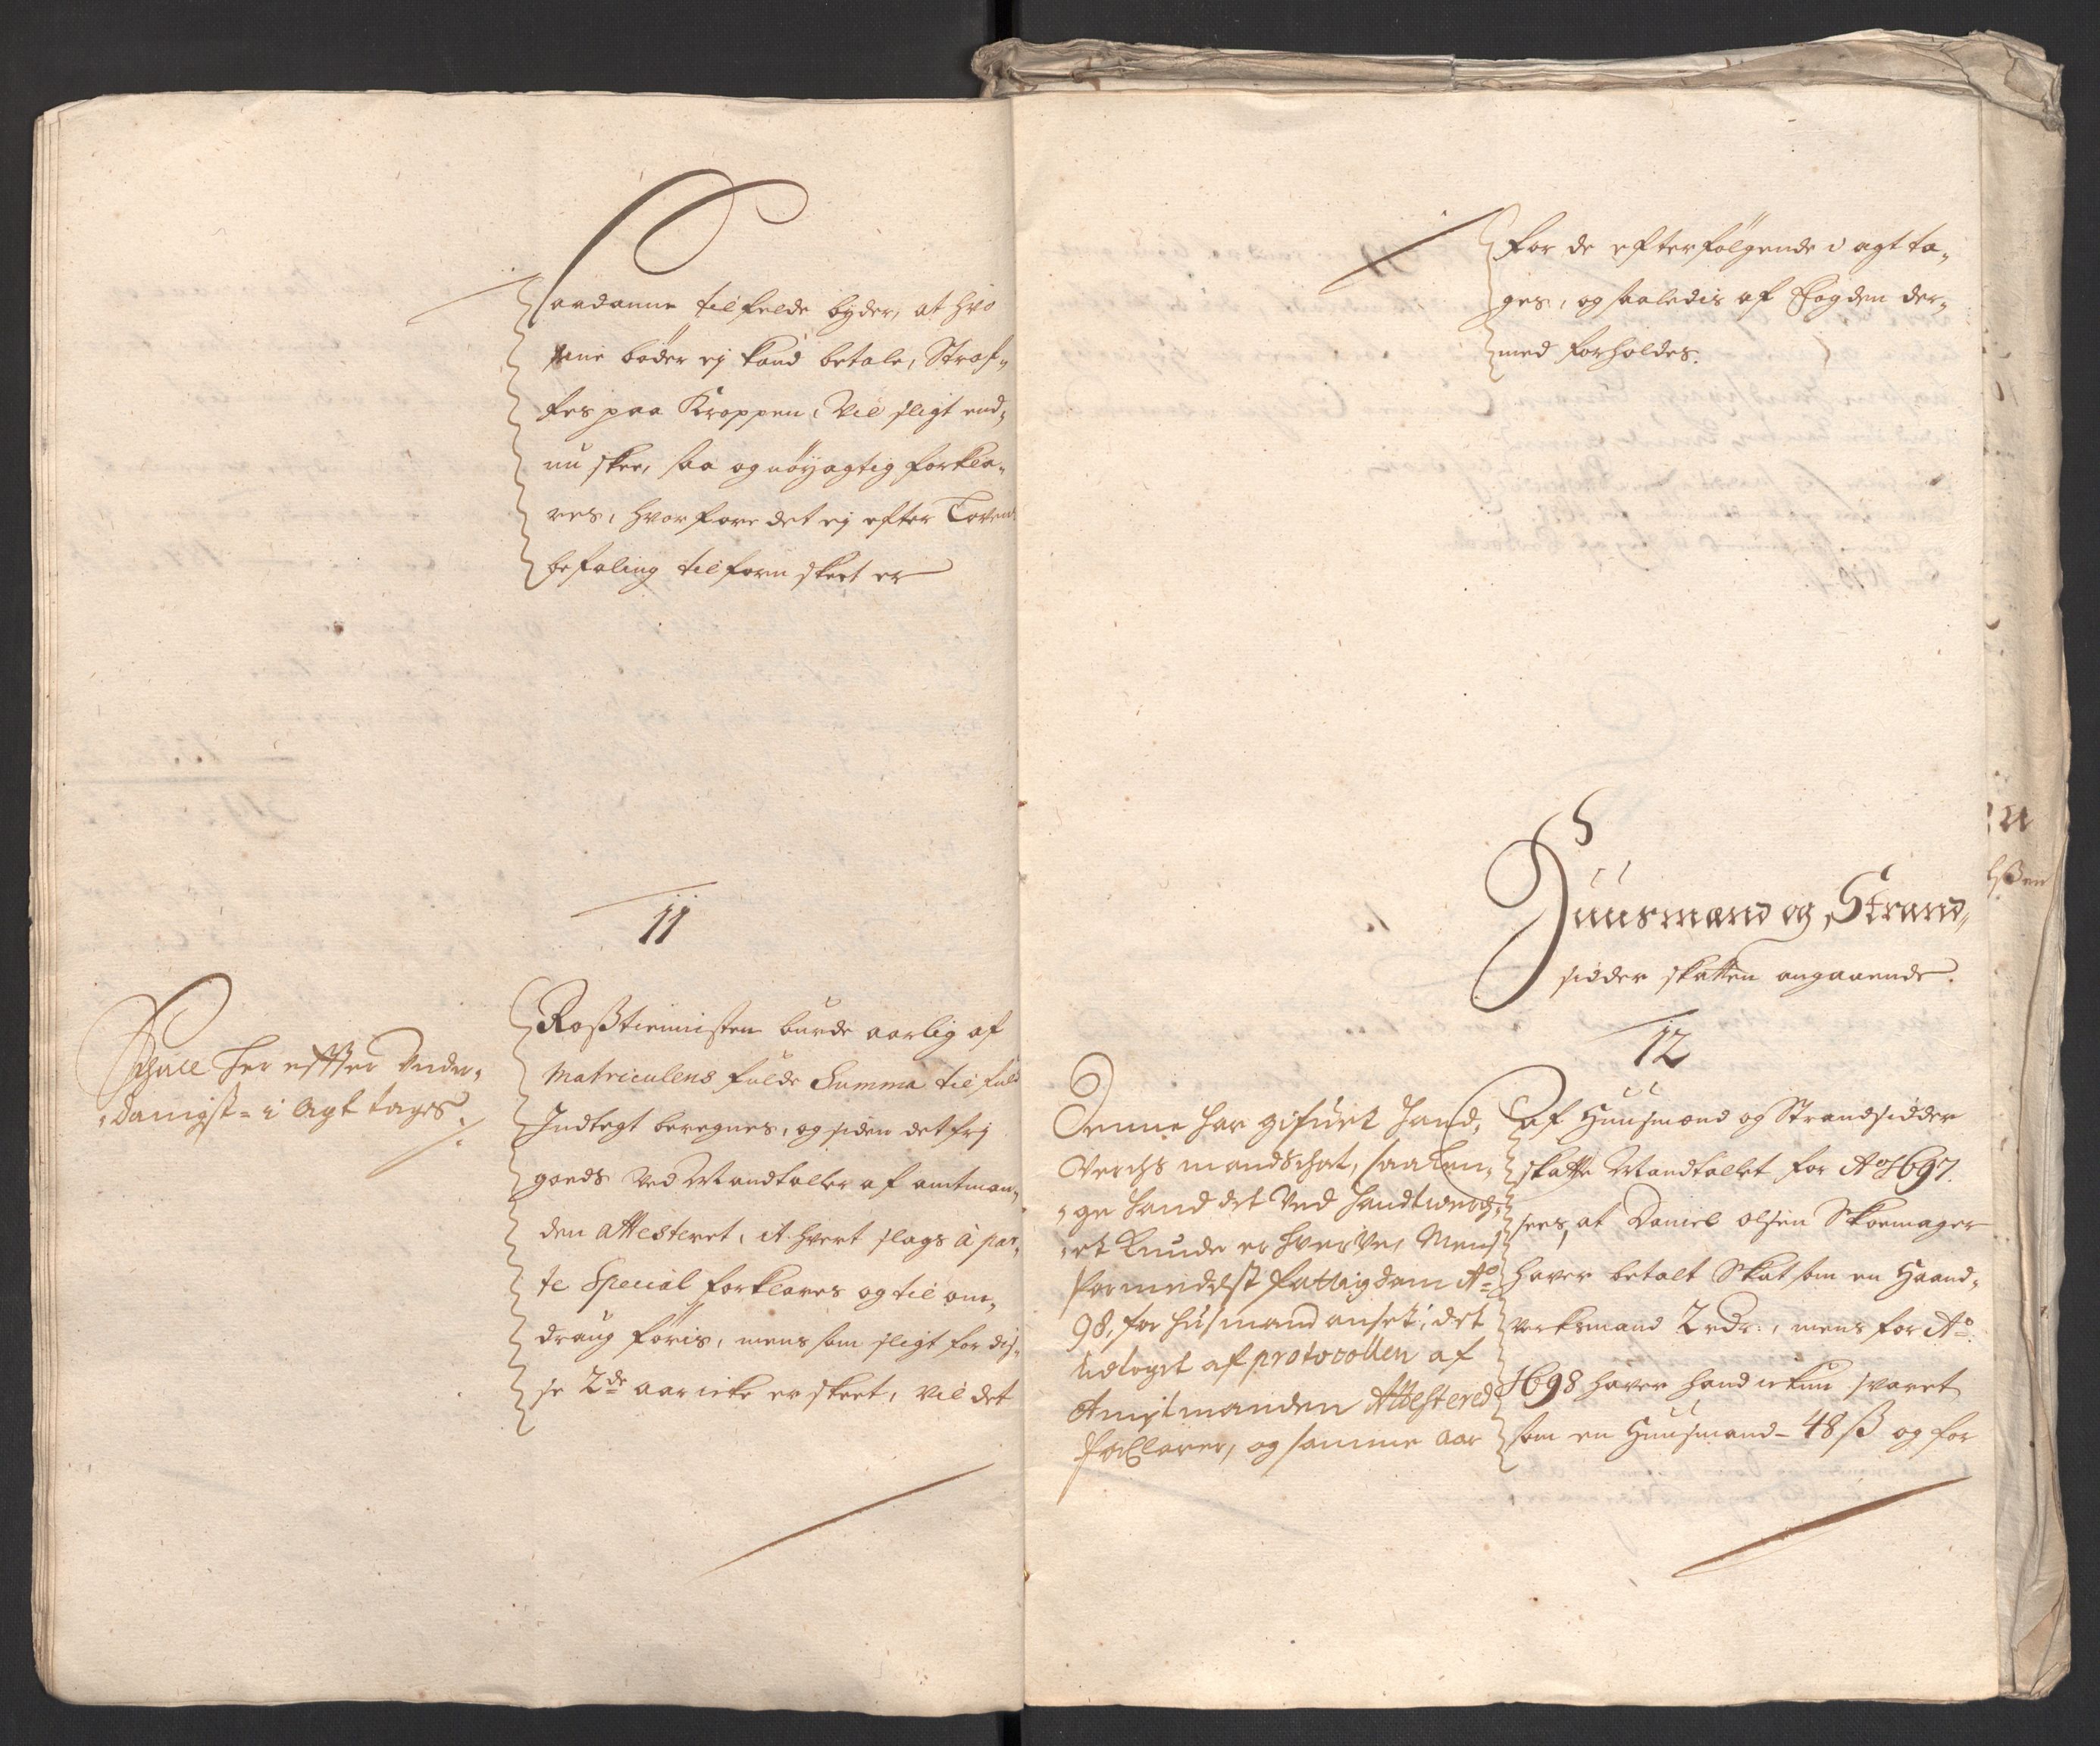 Saadanne tilfelde byder, at hvo
sine bøder ej kand betale, Straf-
fes paa Kroppen, Vil sligt end-
nu skee, saa og nøyagtig forkla-
res, hvorfore det ej efter Lovens
befaling tilforn skeet er
11
Schall her effter Under-
danigst i Agt tages
Roßtiennisten burde aarlig af
Matriculens fulde Summa til fuld
Indtegt beregnes, og siden det frj
goeds ved Mandtaller af amtman-
den attesteret, it. hvert slags à par-
te Special forklares og til om-
draug føris, mens som sligt for dis-
se 2de aar icke er skeet, vil det
for de efterfølgende i agt ta-
ges, og saaledis af Fogden der-
med forholdes.
Huusmænd og Strand-
sidder skatten angaaende.
12
Denne har gifuet hand-
verchs mandschat, saa len-
ge hand det ved handtwerch-
et kunde erhverve, Mens
formedelst fattigdom Ao
98, for husmand anset, det
udtoget af protocollen af
Amptmanden Attestered
forklarer, og samme aar
Af Huusmænd og Strandsidder
skatte Mandtallet for Ao 1697.
sees, at Daniel Olsen Skoemager
haver betalt Skat som en Haand-
verksmand 2 rdr., mens for Ao
1698 haver hand ickun svaret
som en Huusmand - 48 ß og for